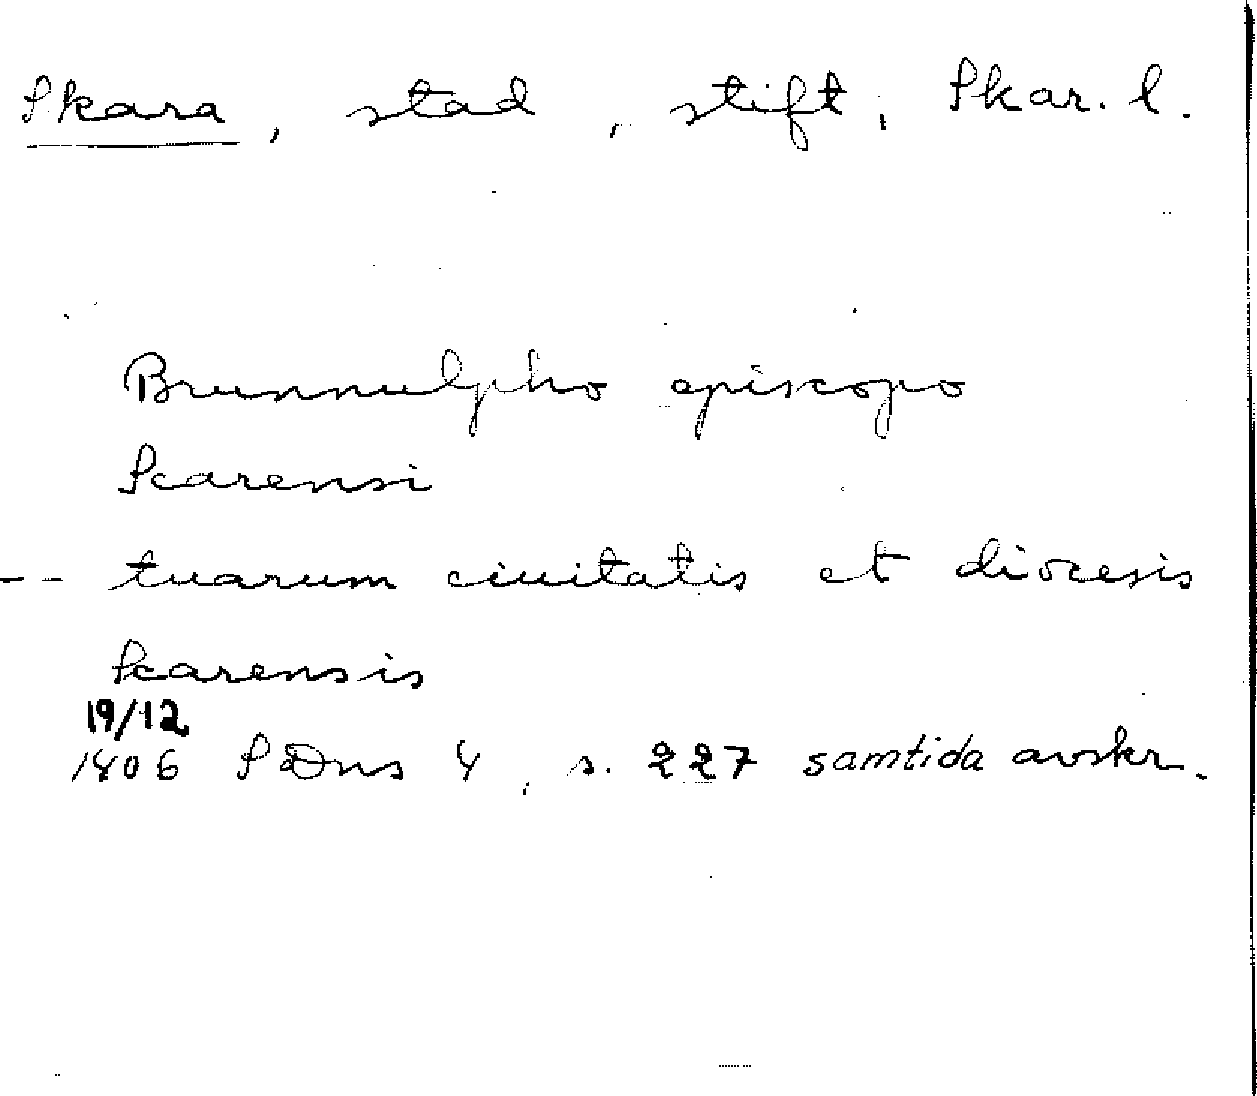 Skara, stad, stift, Skar. l.
Brunnulpho episcopo
Scarensi
-- tuarum ciuitatis et diocesis
Scarensis
19/12
1406 SDns 4, s. 227 samtida avskr.